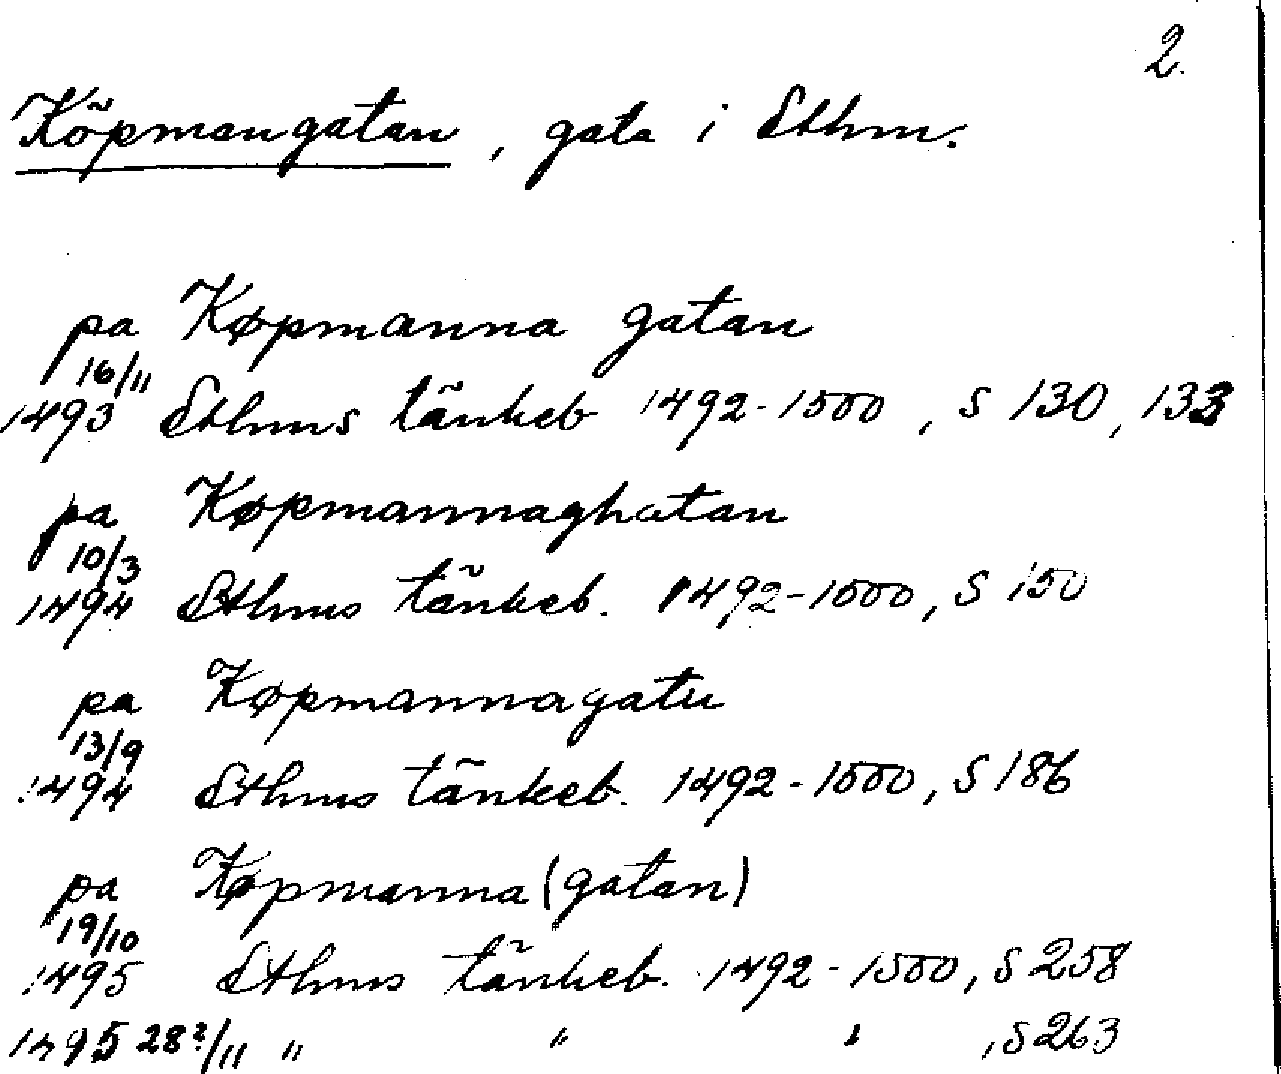 2.
Köpmangatan, gata i Sthlm.
pa Køpmanna gatan
16/11
1493 Sthlms tänkeb 1492-1500, s 130, 133
pa Køpmannaghatan
10/3
1494 Sthlms tänkeb. 1492-1500, s 150
pa Køpmannagatu
13/9
1494 Sthlms tänkeb. 1492-1500, s 186
pa Køpmanna (gatan)
19/10
1495 Sthlms tänkeb. 1492-1500, s 258
1495 28?/11 " " " , s 263